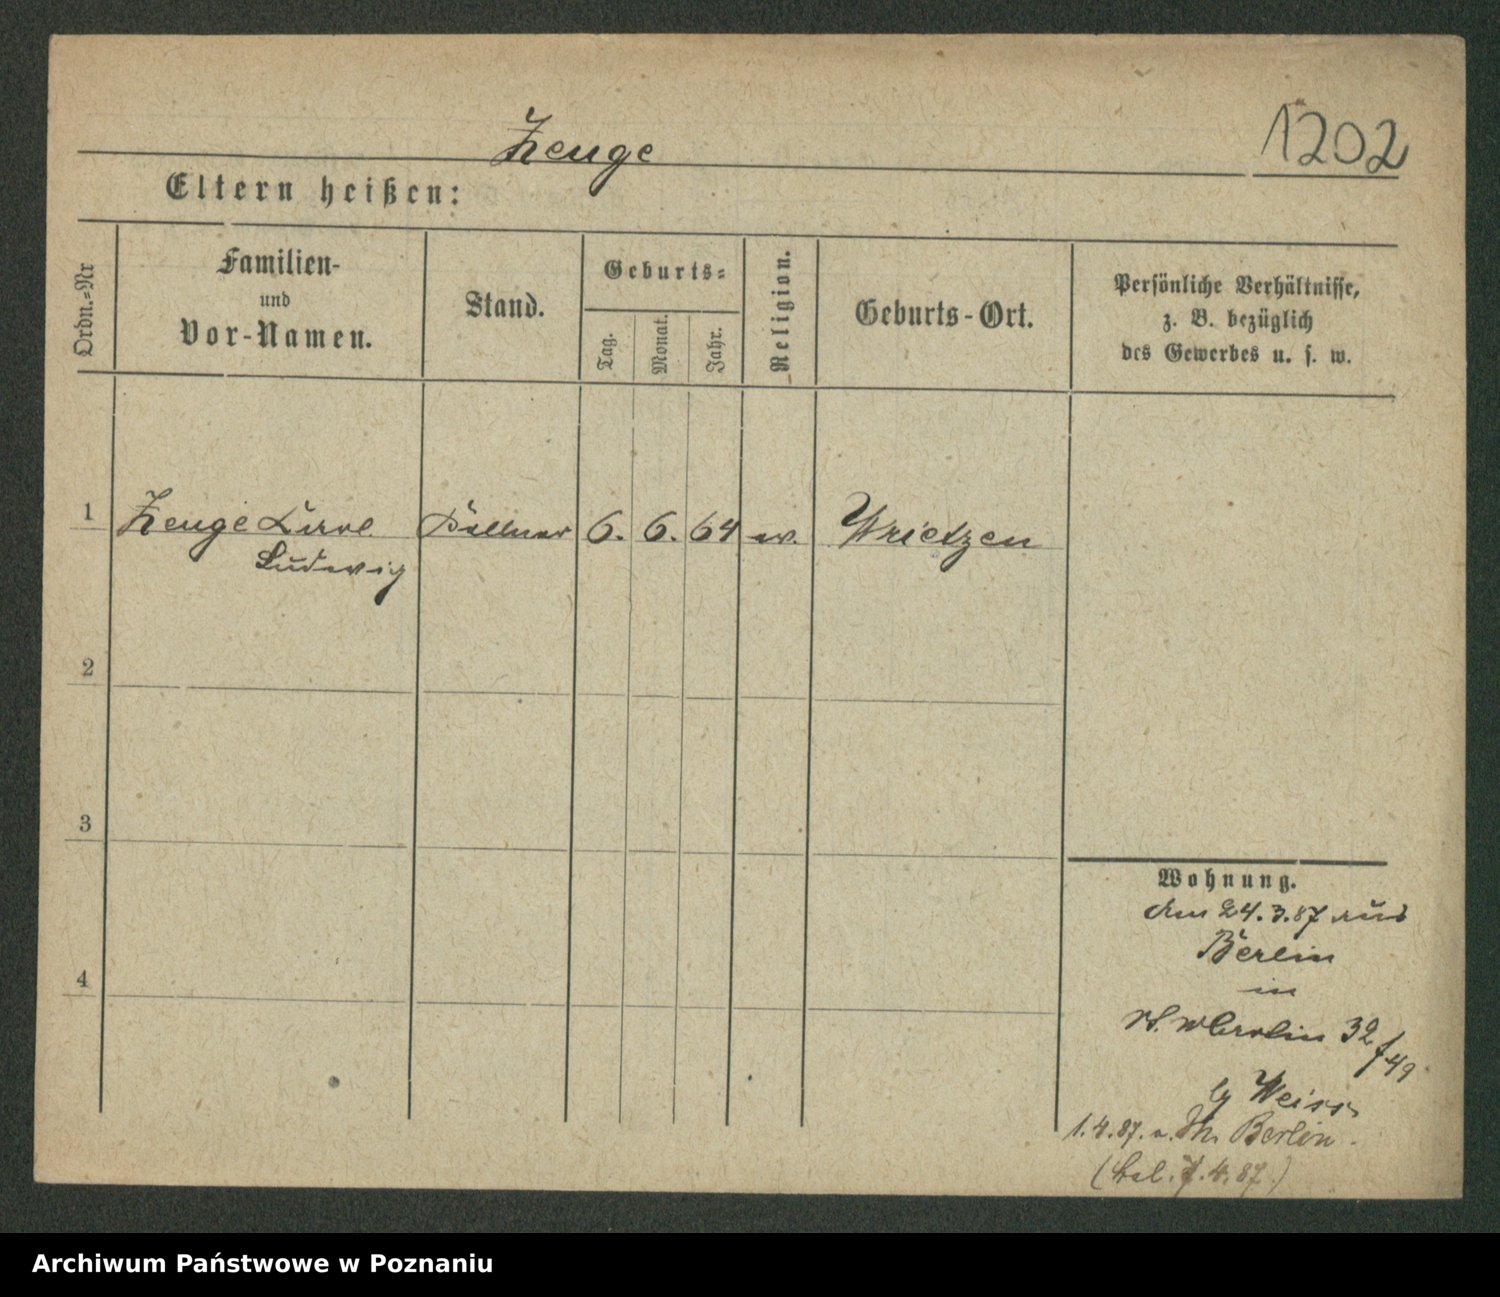 Zenge
1202
Eltern heißen:
Ordn.=Nr
Familien-
und
Vor-Namen.
Stand.
Geburts=
Tag.
Monat.
Jahr.
Religion.
Geburts-Ort.
Persönliche Verhältnisse,
z. B. bezüglich
des Gewerbes u. s. w.
1
Zenge Carl
Ludwig
Kellner
6.
6.
64
ev.
Wrietzen
2
3
4
Wohnung.
den 24.3.87 aus
Berlin
in
32/49
Weiss
1.4.87. n. Berlin.
4.87)
Archiwum Państwowe w Poznaniu